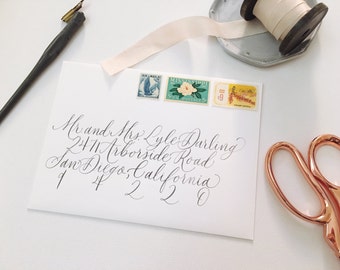 Mr and Mrs Lyle Darling
2411 Arborside Road
San Diego, California
94220